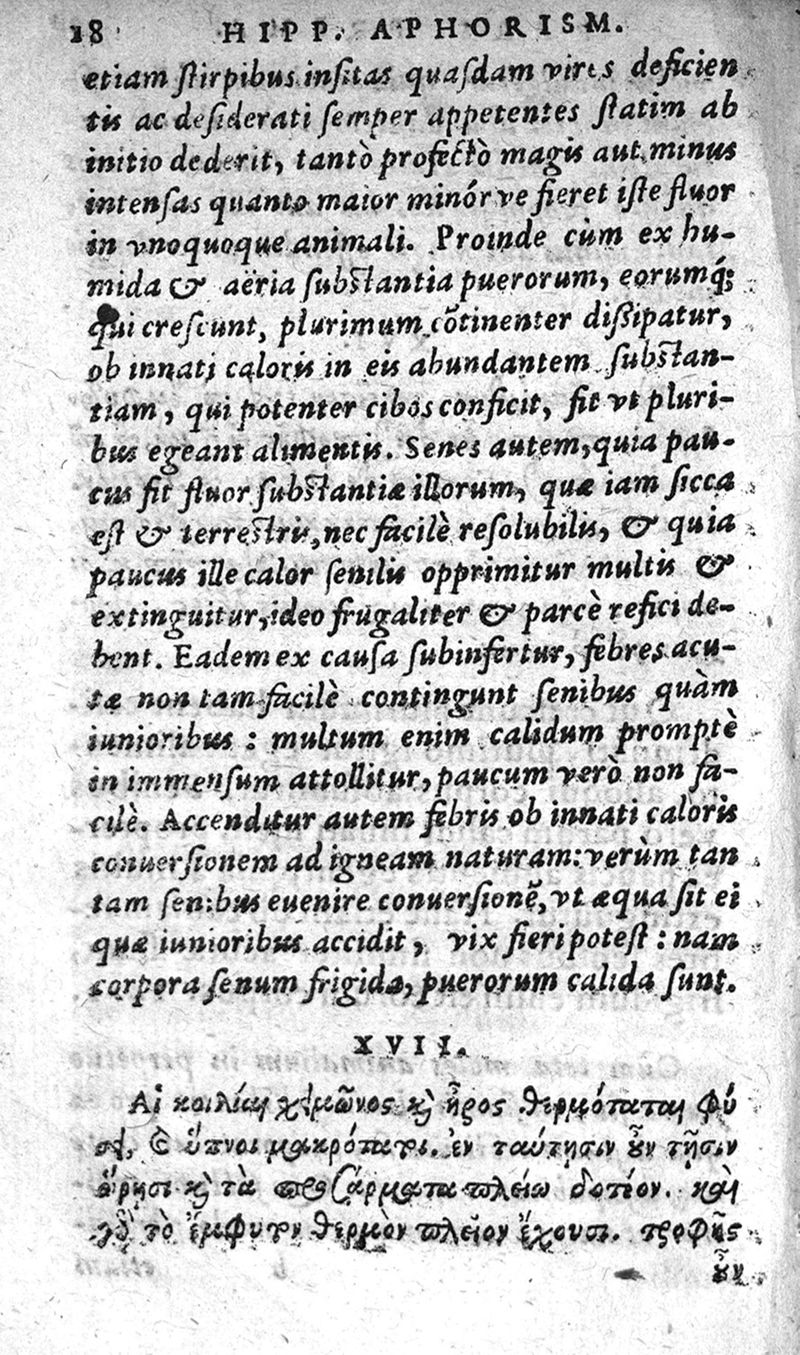 18 HIPP. APHORISM.
etiam stirpibus insitas quasdam vires deficien
tis ac desiderati semper appetentes statim ab
initio dederit, tantò profectò magis aut minus
intensas quanto maior minór ve fieret iste fluor
in vnoquoque animali. Proinde cùm ex hu-
mida & aëria substantia puerorum, eorumq́;
qui crescunt, plurimum cõtinenter dissipatur,
ob innati caloris in eis abundantem substan-
tiam, qui potenter cibos conficit, fit vt pluri-
bus egeant alimentis. Senes autem, quia pau-
cus fit fluor substantiæ illorum, quæ iam sicca
est & terrestris, nec facilè resolubilis, & quia
paucus ille calor senilis opprimitur multis &
extinguitur, ideo frugaliter & parcè refici de-
bent. Eadem ex causa subinfertur, febres acu-
tæ non tam facilè contingunt senibus quàm
iunioribus : multum enim calidum promptè
in immensum attollitur, paucum verò non fa-
cilè. Accenditur autem febris ob innati caloris
conuersionem ad igneam naturam: verùm tan
tam senibus euenire conuersionẽ, vt æqua sit ei
quæ iunioribus accidit, vix fieri potest : nam
corpora senum frigida, puerorum calida sunt.
XVII.
Αἱ κοιλίαι χειμῶνος καὶ ἦρος θερμόταται φύ
σει, καὶ ὕπνοι μακρότατοι. ἐν ταύτῃσιν οὖν τῇσιν
ὥρῃσι καὶ τὰ προσάρματα πλείω δοτέον. καὶ
γὸ τὸ ἔμφυτον θερμὸν πλεῖον ἔχουσι. τροφῆς
οὖν